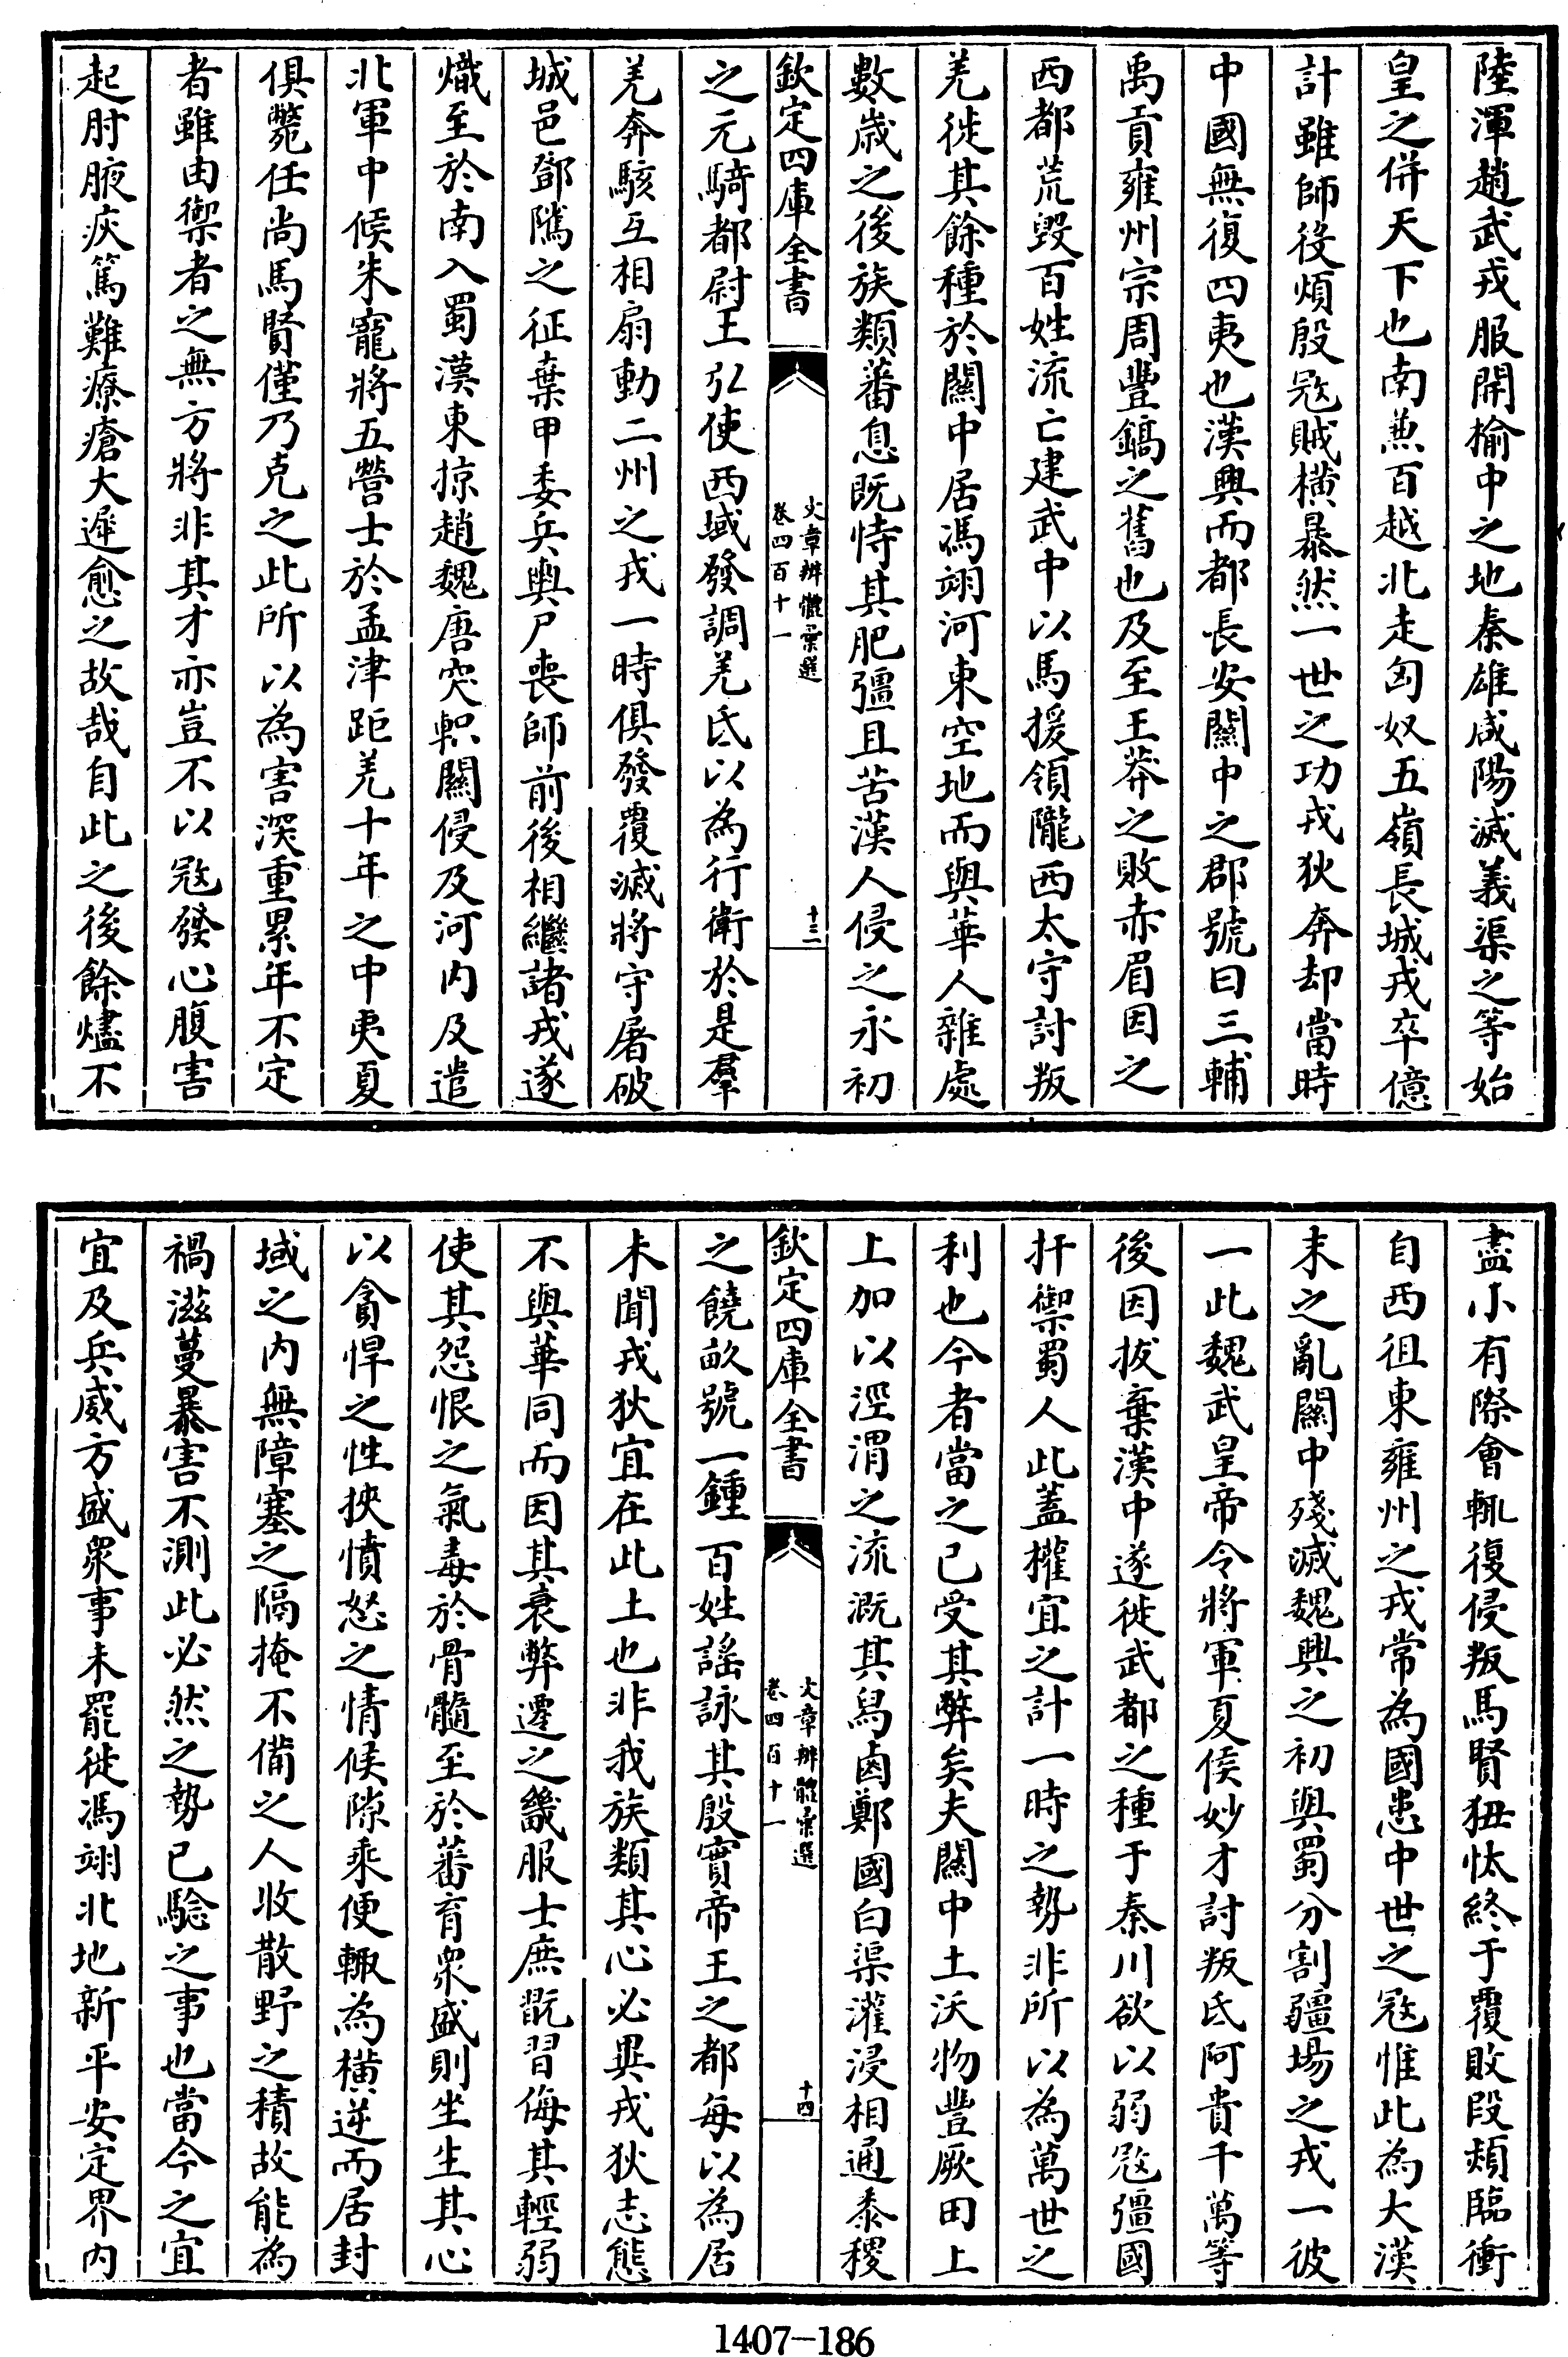 陸渾趙武戎服開榆中之地秦雄咸陽滅義渠之等始
皇之併天下也南兼百越北走匈奴五嶺長城戎卒億
計雖師役煩殷宼賊橫暴然一世之功戎狄奔却當時
中國無復四夷也漢興而都長安關中之郡號曰三輔
禹貢雍州宗周豐鎬之舊也及至王莽之敗赤眉因之
西都荒毀百姓流亡建武中以馬援領隴西太守討叛
羌徙其餘種於關中居馮翊河東空地而與華人雜處
數歲之後族類蕃息既恃其肥彊且苦漢人侵之永初
欽定四庫全書
文章辨體彙選
卷四百十一
十三
之元騎都尉王弘使西域發調羌氐以為行衛於是羣
羌奔駭互相扇動二州之戎一時俱發覆滅將守屠破
城邑鄧隲之征棄甲委兵輿尸喪師前後相繼諸戎遂
熾至於南入蜀漢東掠趙魏唐突軹關侵及河内及遣
北軍中候朱寵將五營士於孟津距羌十年之中夷夏
俱斃任尚馬賢僅乃克之此所以為害深重累年不定
者雖由禦者之無方將非其才亦豈不以宼發心腹害
起肘腋疢篤難療瘡大遲愈之故哉自此之後餘燼不
盡小有際會輒復侵叛馬賢狃忲終于覆敗段熲臨衝
自西徂東雍州之戎常為國患中世之宼惟此為大漢
末之亂關中殘滅魏興之初與蜀分割疆場之戎一彼
一此魏武皇帝令將軍夏侯妙才討叛氐阿貴千萬等
後因拔棄漢中遂徙武都之種于秦川欲以弱宼彊國
扞禦蜀人此蓋權宜之計一時之勢非所以為萬世之
利也今者當之已受其弊矣夫關中土沃物豐厥田上
上加以涇渭之流溉其舄鹵鄭國白渠灌浸相通黍稷
欽定四庫全書
文章辨體彙選
卷四百十一
十四
之饒畝號一鍾百姓謡詠其殷實帝王之都每以為居
未聞戎狄宜在此土也非我族類其心必異戎狄志態
不與華同而因其衰弊遷之畿服士庶翫習侮其輕弱
使其怨恨之氣毒於骨髓至於蕃育衆盛則坐生其心
以貪悍之性挾憤怒之情候隙乘便輒為横逆而居封
域之内無障塞之隔掩不備之人收散野之積故能為
禍滋蔓暴害不測此必然之勢已驗之事也當今之宜
宜及兵威方盛衆事未罷徙馮翊北地新平安定界内
1407-186